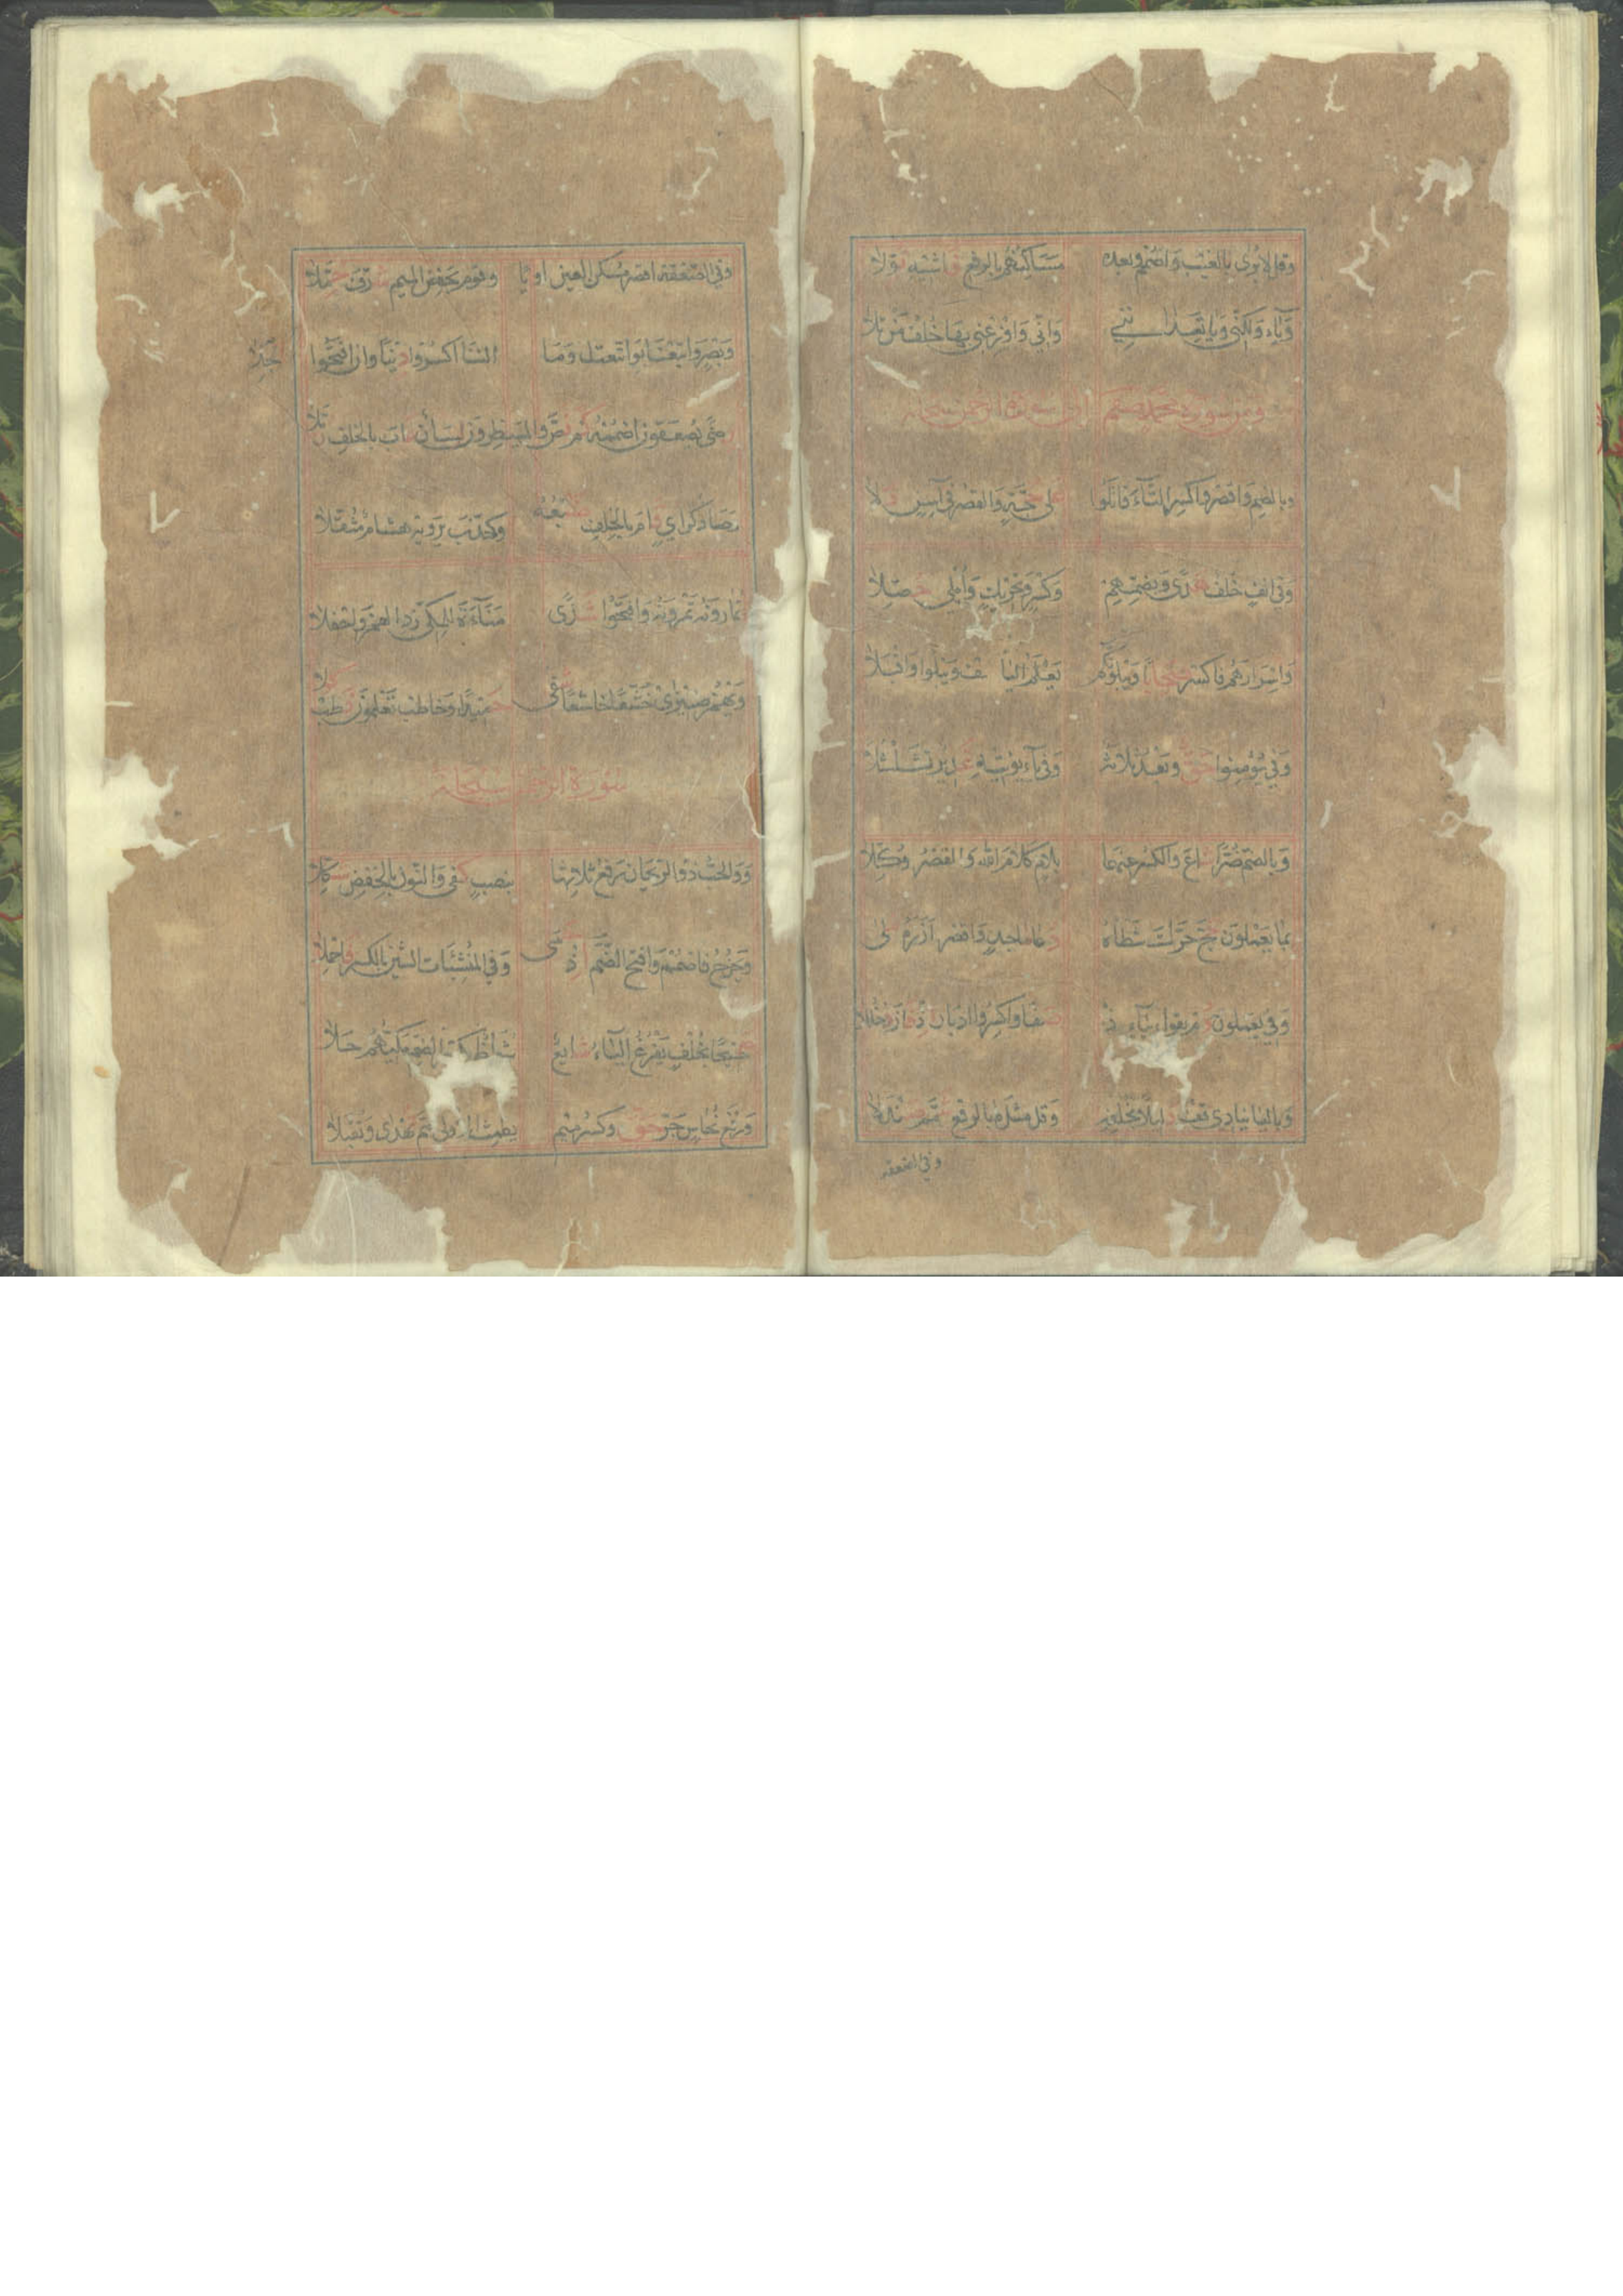 وقل لا يرى بالغيب واضمم وبعده مساكنهم بالرفع فاشيه نولا
وياء ولكني ويا تعدانني واني واوزعني بها خلف من تلا
ومن سورة محمد صلعم الى سورة الرحمن سبحانه
وبالضم واقصر واكسر التاء قاتلوا على حجة والقصر في آسن دلا
وفي انفا خلف هدى وبضمهم وكسر وتحريك وأملي حصلا
واسرارهم فاكسر صحابا ويبلونكم يعلم اليا صف ويبلوا واقبلا
وفي يؤمنوا حق وبعد ثلاثة وفي ياء يؤتيه غدير تسلسلا
وبالضم ضرا شاع والكسر عنهما بلام كلام الله والقصر وكلا
بما يعملون حج حرك شطأه دعا ماجد واقصر آزره ملا
وفي يعملون دم يقول بياء اذ صفا واكسروا ادبار اذ فاز دخللا
وباليا ينادي قف دليلا بخلفه وقل مثل ما بالرفع شمم صندلا
وفي الصعقة
وفي الصعقة اقصر مسكن العين راويا وقوم بخفض الميم شرف حملا
وبصر واتبعنا بواتبعت وما التنا اكسروا دنيا وان افتحوا
جلا
رضى يصعقون اضممه كم نص والمسيطرون لسان عاب بالخلف زملا
وصاد كزاي قام بالخلف ضبعه وكذب يرويه هشام مثقلا
تمارونه تمرونه وافتحوا شذى مناءة للمكي زد الهمز واحفلا
ويهمز ضيزى خشعا خاشعا شفى حميدا وخاطب تعلمون فطب كلا
سورة الرحمن سبحانه
ووالحب ذو الريحان رفع ثلاثها بنصب كفى والنون بالخفض شكلا
ويخرج فاضمم وافتح الضم اذ حمى وفي المنشئات الشين بالكسر فاحملا
صحيحا بخلف يفرغ الياء شايع شواظ بكسر الضم مكيهم جلا
ورفع نحاس جر حق وكسر ميم يطمث في الاولى ضم تهدى وتقبلا